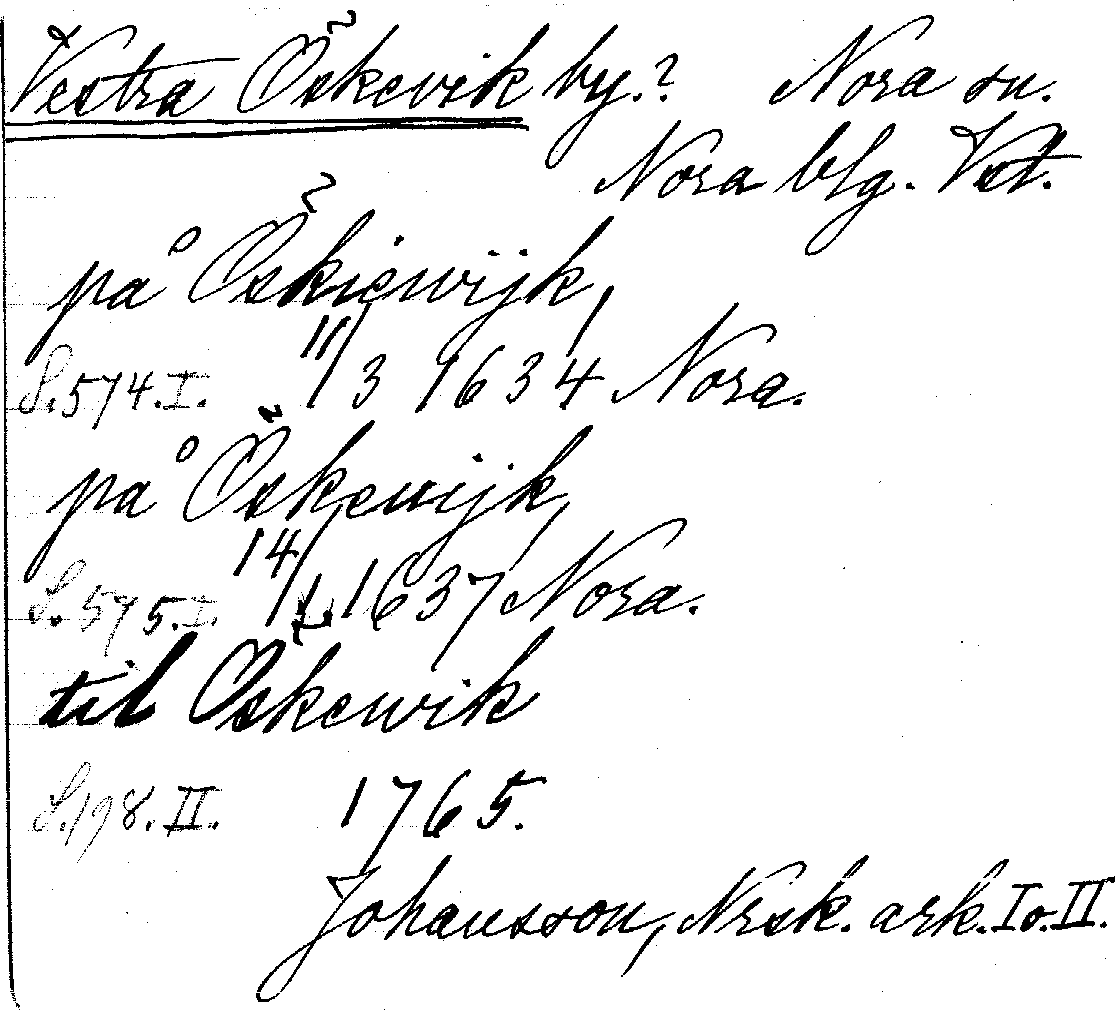 Vestra Öskevik by.? Nora sn.
Nora blg. Vst.
på Öskiewijk,
S. 574. I. 11/3 1634 Nora.
på Öskewijk,
S. 575. I. 14/1 1637 Nora.
til Öskewik
S. 198. II. 1765.
Johansson, Nrsk. ark. I o. II.